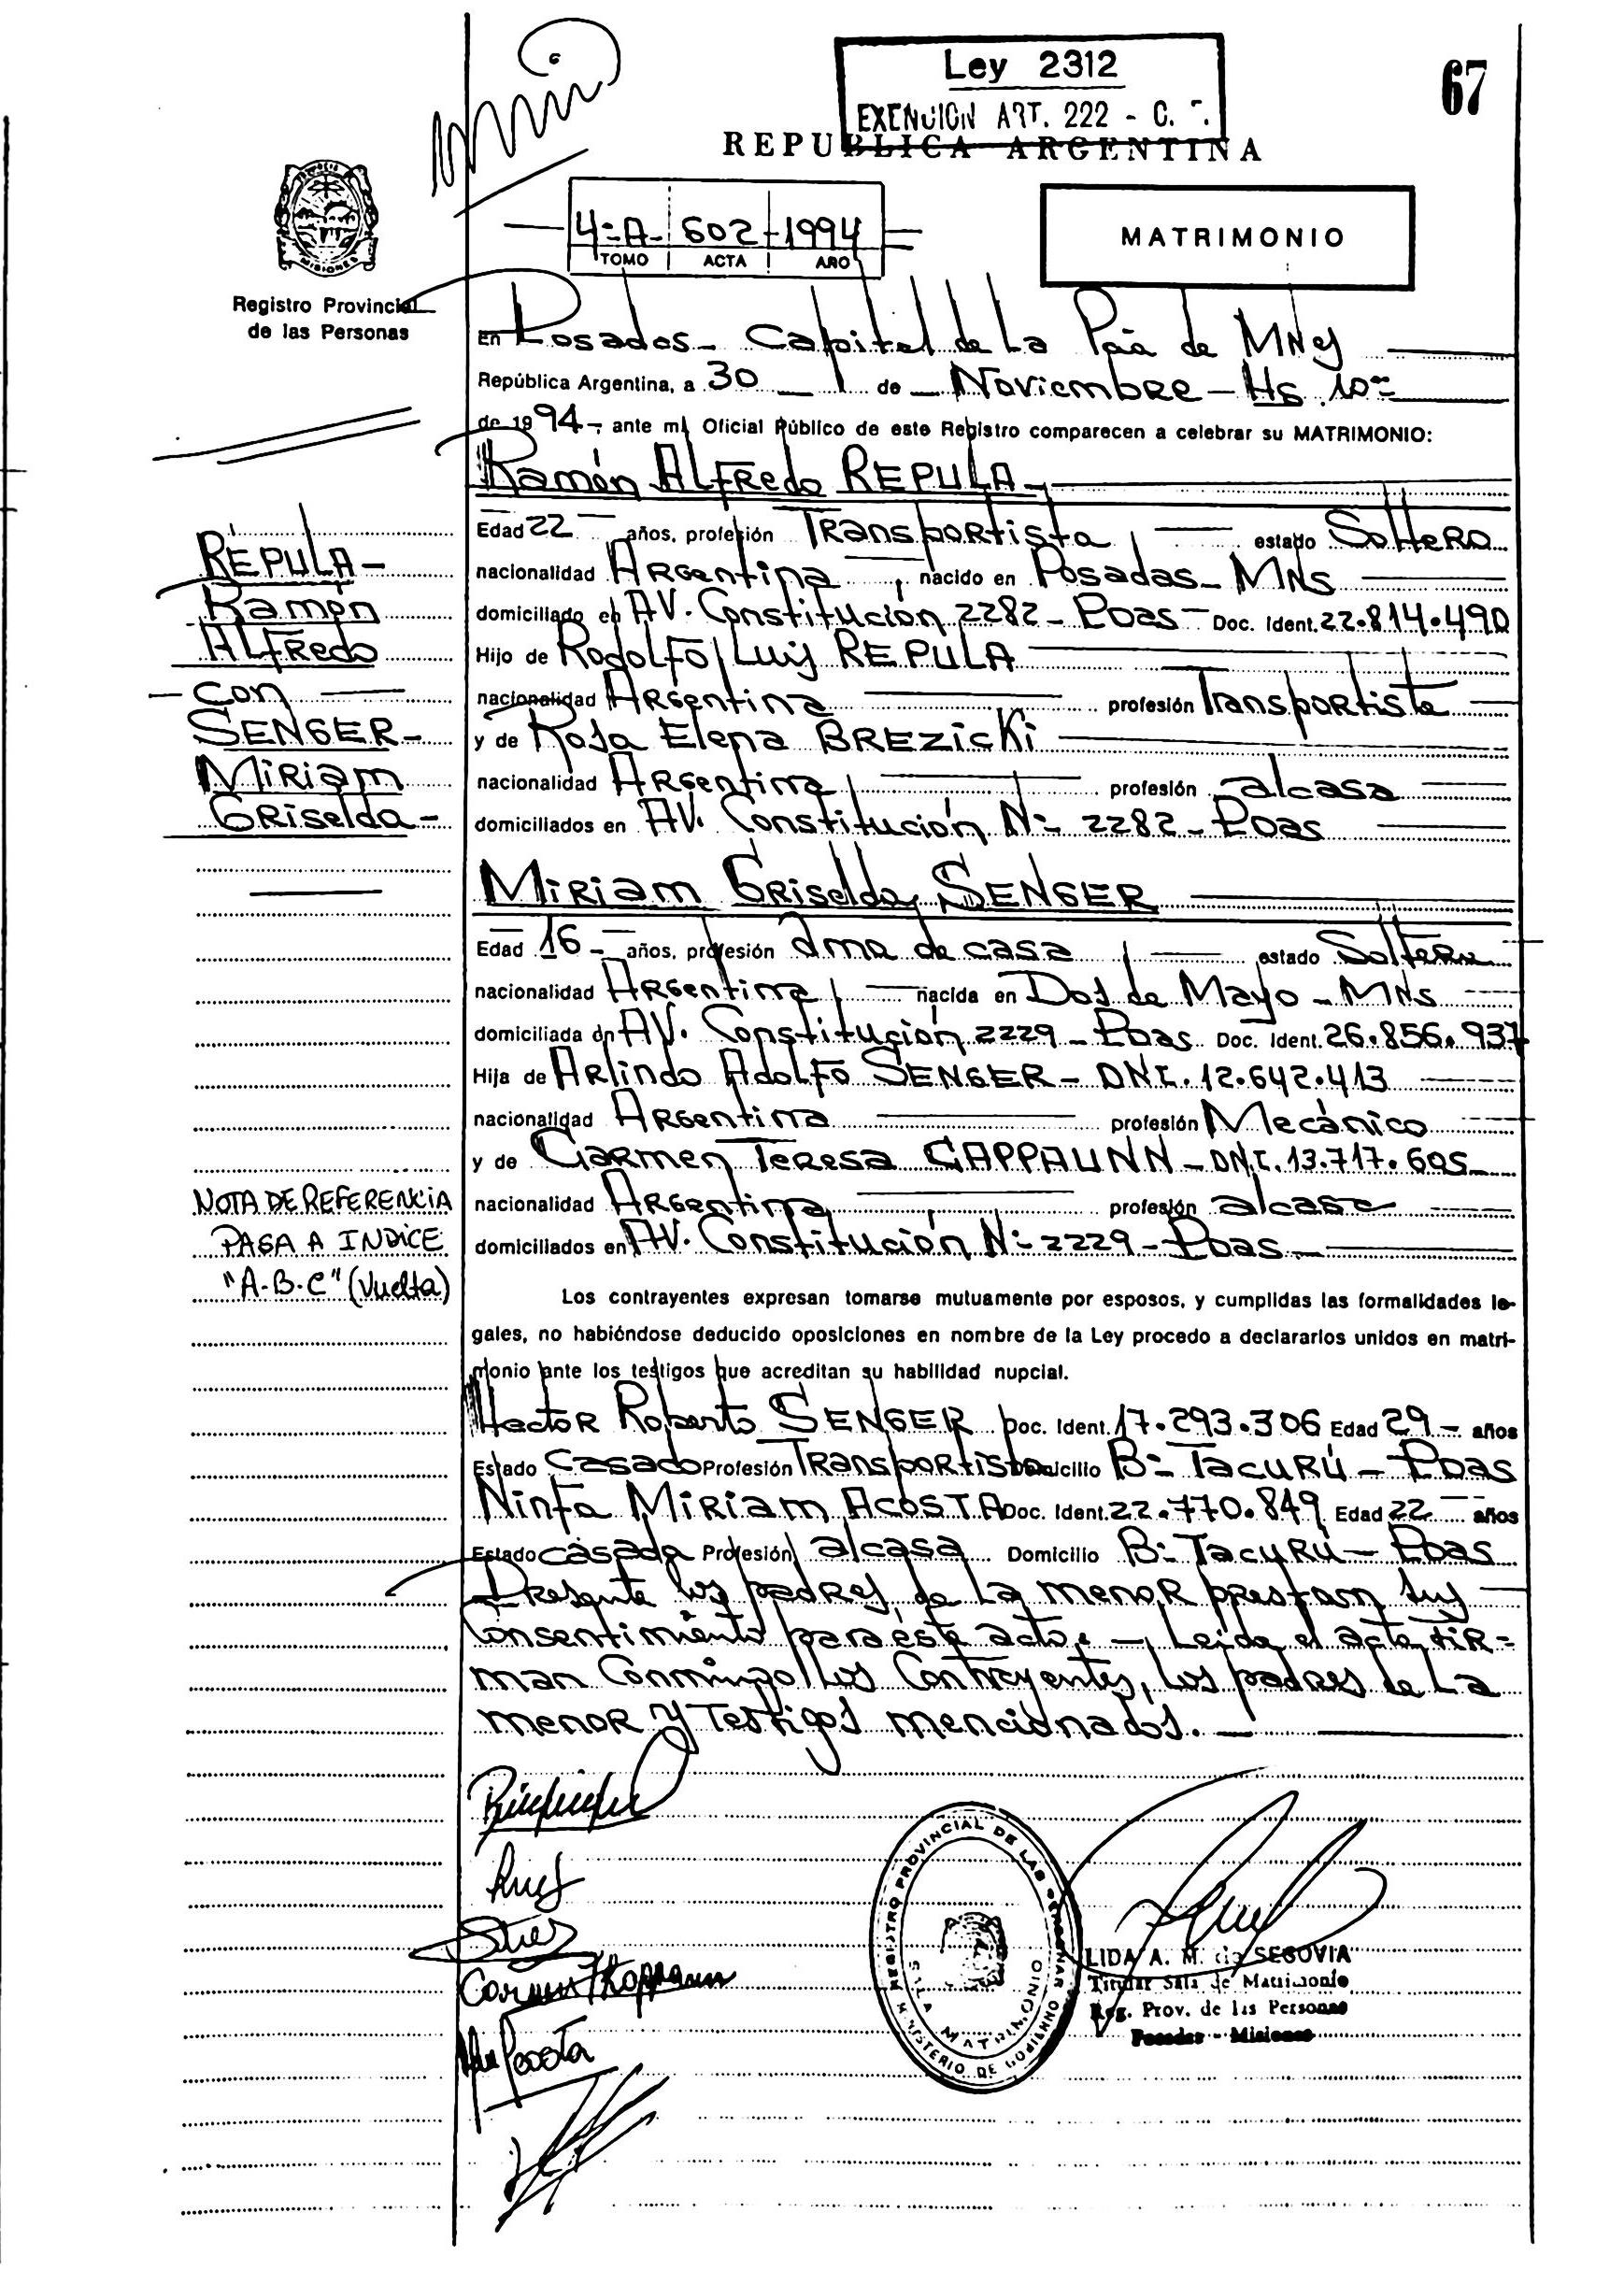 Ley 2312
EXENCION ART. 222 - C.
67
REPUBLICA ARGENTINA
4=A- 602 -1994
TOMO ACTA AÑO
MATRIMONIO
MISIONES
Registro Provincial
de las Personas
En Posadas - Capital de La Pcia de MNes
República Argentina, a 30 de Noviembre - Hs. 10
de 1994 - ante mí Oficial Público de este Registro comparecen a celebrar su MATRIMONIO:
Ramón ALFRedo REPULA -
Edad 22 - años, profesión TRansportista, estado SolteRo
nacionalidad ARgentina, nacido en Posadas - MNs
domiciliado en AV. Constitución 2282 - Pdas - Doc. Ident. 22.814.490
Hijo de RodoLFo Luis REPULA
nacionalidad ARgentina profesión Transportista
y de Rosa Elena BREZicKi
nacionalidad ARgentina, profesión alcasa
domiciliados en AV. Constitución N= 2282 - Pdas
Miriam GRiselda SENGER
Edad 16 - años, profesión ama de casa, estado SolteRa
nacionalidad ARgentina, nacida en Dos de Mayo - MNs
domiciliada en AV. Constitución 2229 - Pdas Doc. Ident. 26.856.937
Hija de ARlindo AdolFo SENGER - DNI. 12.642.413
nacionalidad ARgentina profesión Mecánico
y de Carmen TeResa GAPPAUNN - DNI. 13.717.605
nacionalidad ARgentina, profesión alcasa
domiciliados en AV. Constitución N= 2229 - Pdas -
Los contrayentes expresan tomarse mutuamente por esposos, y cumplidas las formalidades le-
gales, no habiéndose deducido oposiciones en nombre de la Ley procedo a declararlos unidos en matri-
monio ante los testigos que acreditan su habilidad nupcial.
HectoR Roberto SENGER Doc. Ident. 17.293.306 Edad 29 - años
Estado Casado Profesión TRansportista Domicilio B= TacuRú - Pdas
Ninfa MiRiam AcosTA Doc. Ident. 22.770.849 Edad 22 años
Estado casada Profesión alcasa Domicilio B= TacuRú - Pdas
PResente los padRes de La menoR prestam sus
Consentimiento para éste acto. - Leida el acta fiR=
man Conmigo los ContRayentes, los padRes de La
menoR y Testigos mencionados. -
REPULA -
Ramón
ALFRedo
- con
SENGER -
MiRiam
GRiselda -
NOTA DE REFERENCIA
PASA A INDICE
"A-B-C" (Vuelta)
Carmen T Koppaun
Acosta
REGISTRO PROVINCIAL DE LAS PERSONAS
MINISTERIO DE GOBIERNO
SALA MATRIMONIO
LIDA A. M. de SEGOVIA
Titular Sala de Matrimonio
Reg. Prov. de las Personas
Posadas - Misiones